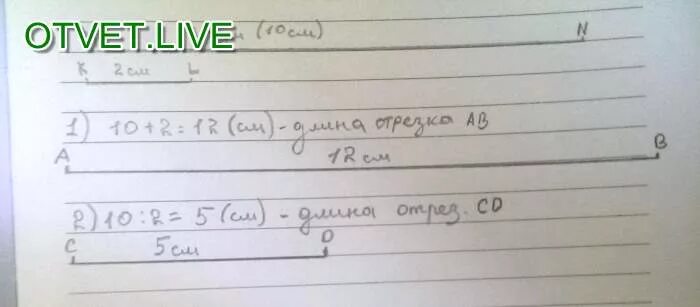 OTVET.LIVE
(10см) N
K 2см L
1) 10+2=12 (см) - длина отрезка AB
A 12см B
2) 10:2= 5 (см) - длина отрез. CD
C 5см D